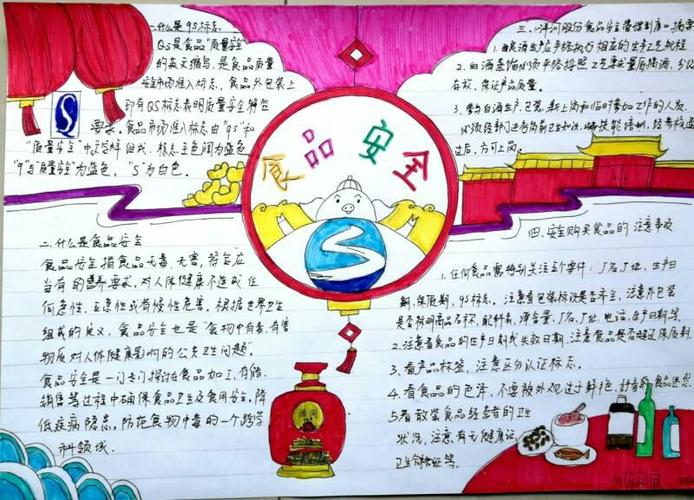 一.什么是QS标志
QS是食品"质量安全"
的英文缩写,是食品质量
安全市场准入标志,食品外包装上
印有QS标志表明质量安全符合
要求。食品市场准入标志由"QS"和
"质量安全"中文字样组成。标志主色调为蓝色
"Q"与"质量安全"为蓝色,"S"为白色。
二.什么是食品安全
食品安全指食品无毒、无害,符合应
当有的营养要求,对人体健康不造成任
何急性、亚急性或者慢性危害。根据世界卫生
组织的定义,食品安全也是"食物中有毒、有害
物质对人体健康影响的公共卫生问题"。
食品安全是一门专门探讨在食品加工、存储、
销售等过程中确保食品卫生及食用安全,降
低疾病隐患,防范食物中毒的一个跨学
科领域。
食品安全
S
洋河
三.《洋河股份食品安全管理制度》摘第
1.白酒生产严格执行相应的生产工艺规程
2.白酒蒸馏必须严格按照工艺要求量质摘酒,分
存放,保证产品质量。
3.参与白酒生产、包装、新上岗和临时参加工作的人员
必须经部门进行岗前卫生知识、
过后,方可上岗。
四.安全购买食品的注意事项
1.任何食品需特别关注五个事件:厂名厂址、生产日
期、保质期、QS标志。注意看包装标识是否齐全,注意外包装
是否标明商品名称、配料表、净含量、厂名、厂址、电话、生产日期等。
2.注意看食品的生产日期或失效日期,注意食品是否超过保质期
3.看产品标签,注意区分认证标志。
4.看食品的色泽,不要被外观过于鲜艳、好看的食品迷惑
5.看散装食品经营者的卫生
状况,注意有无健康证,
卫生合格证等。